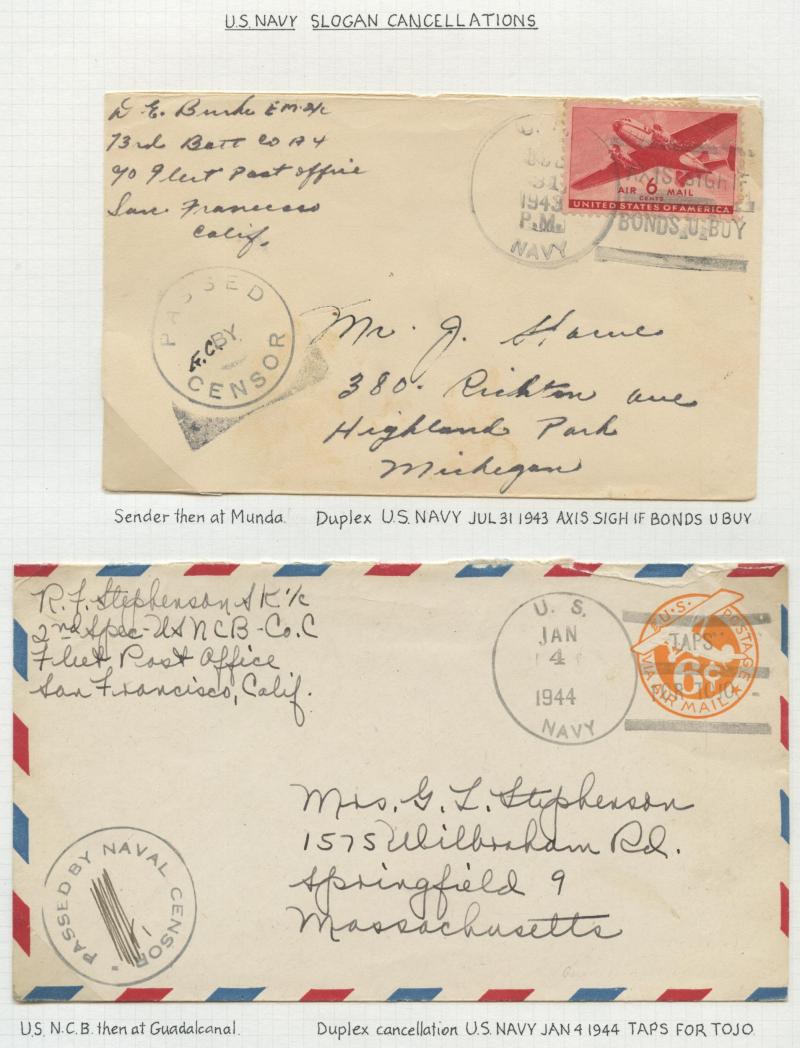 U.S. NAVY SLOGAN CANCELLATIONS
D E Burke EM 2/c
73rd Batt Co A 4
c/o Fleet Post Office
San Francisco
Calif.
U.S.
JUL
31
1943
P.M.
NAVY
AIR 6 MAIL
CENTS
UNITED STATES OF AMERICA
AXIS SIGH
BONDS U BUY
PASSED
BY
F.C.
CENSOR
Mr. J. Stame
380. Richton ave
Highland Park
Michegan
Sender then at Munda. Duplex U.S. NAVY JUL 31 1943 AXIS SIGH IF BONDS U BUY
R. F. Stephenson SK 1/c
2nd Spec-USNCB-Co.C
Fleet Post Office
San Francisco, Calif.
U. S.
JAN
4
1944
NAVY
U.S. POSTAGE
6¢
VIA AIR MAIL
TAPS
FOR TOJO
Mrs. G. L. Stephenson
1575 Wilbraham Rd.
Springfield 9
Massachusetts
PASSED BY NAVAL CENSOR
U.S. N.C.B. then at Guadalcanal. Duplex cancellation U.S. NAVY JAN 4 1944 TAPS FOR TOJO